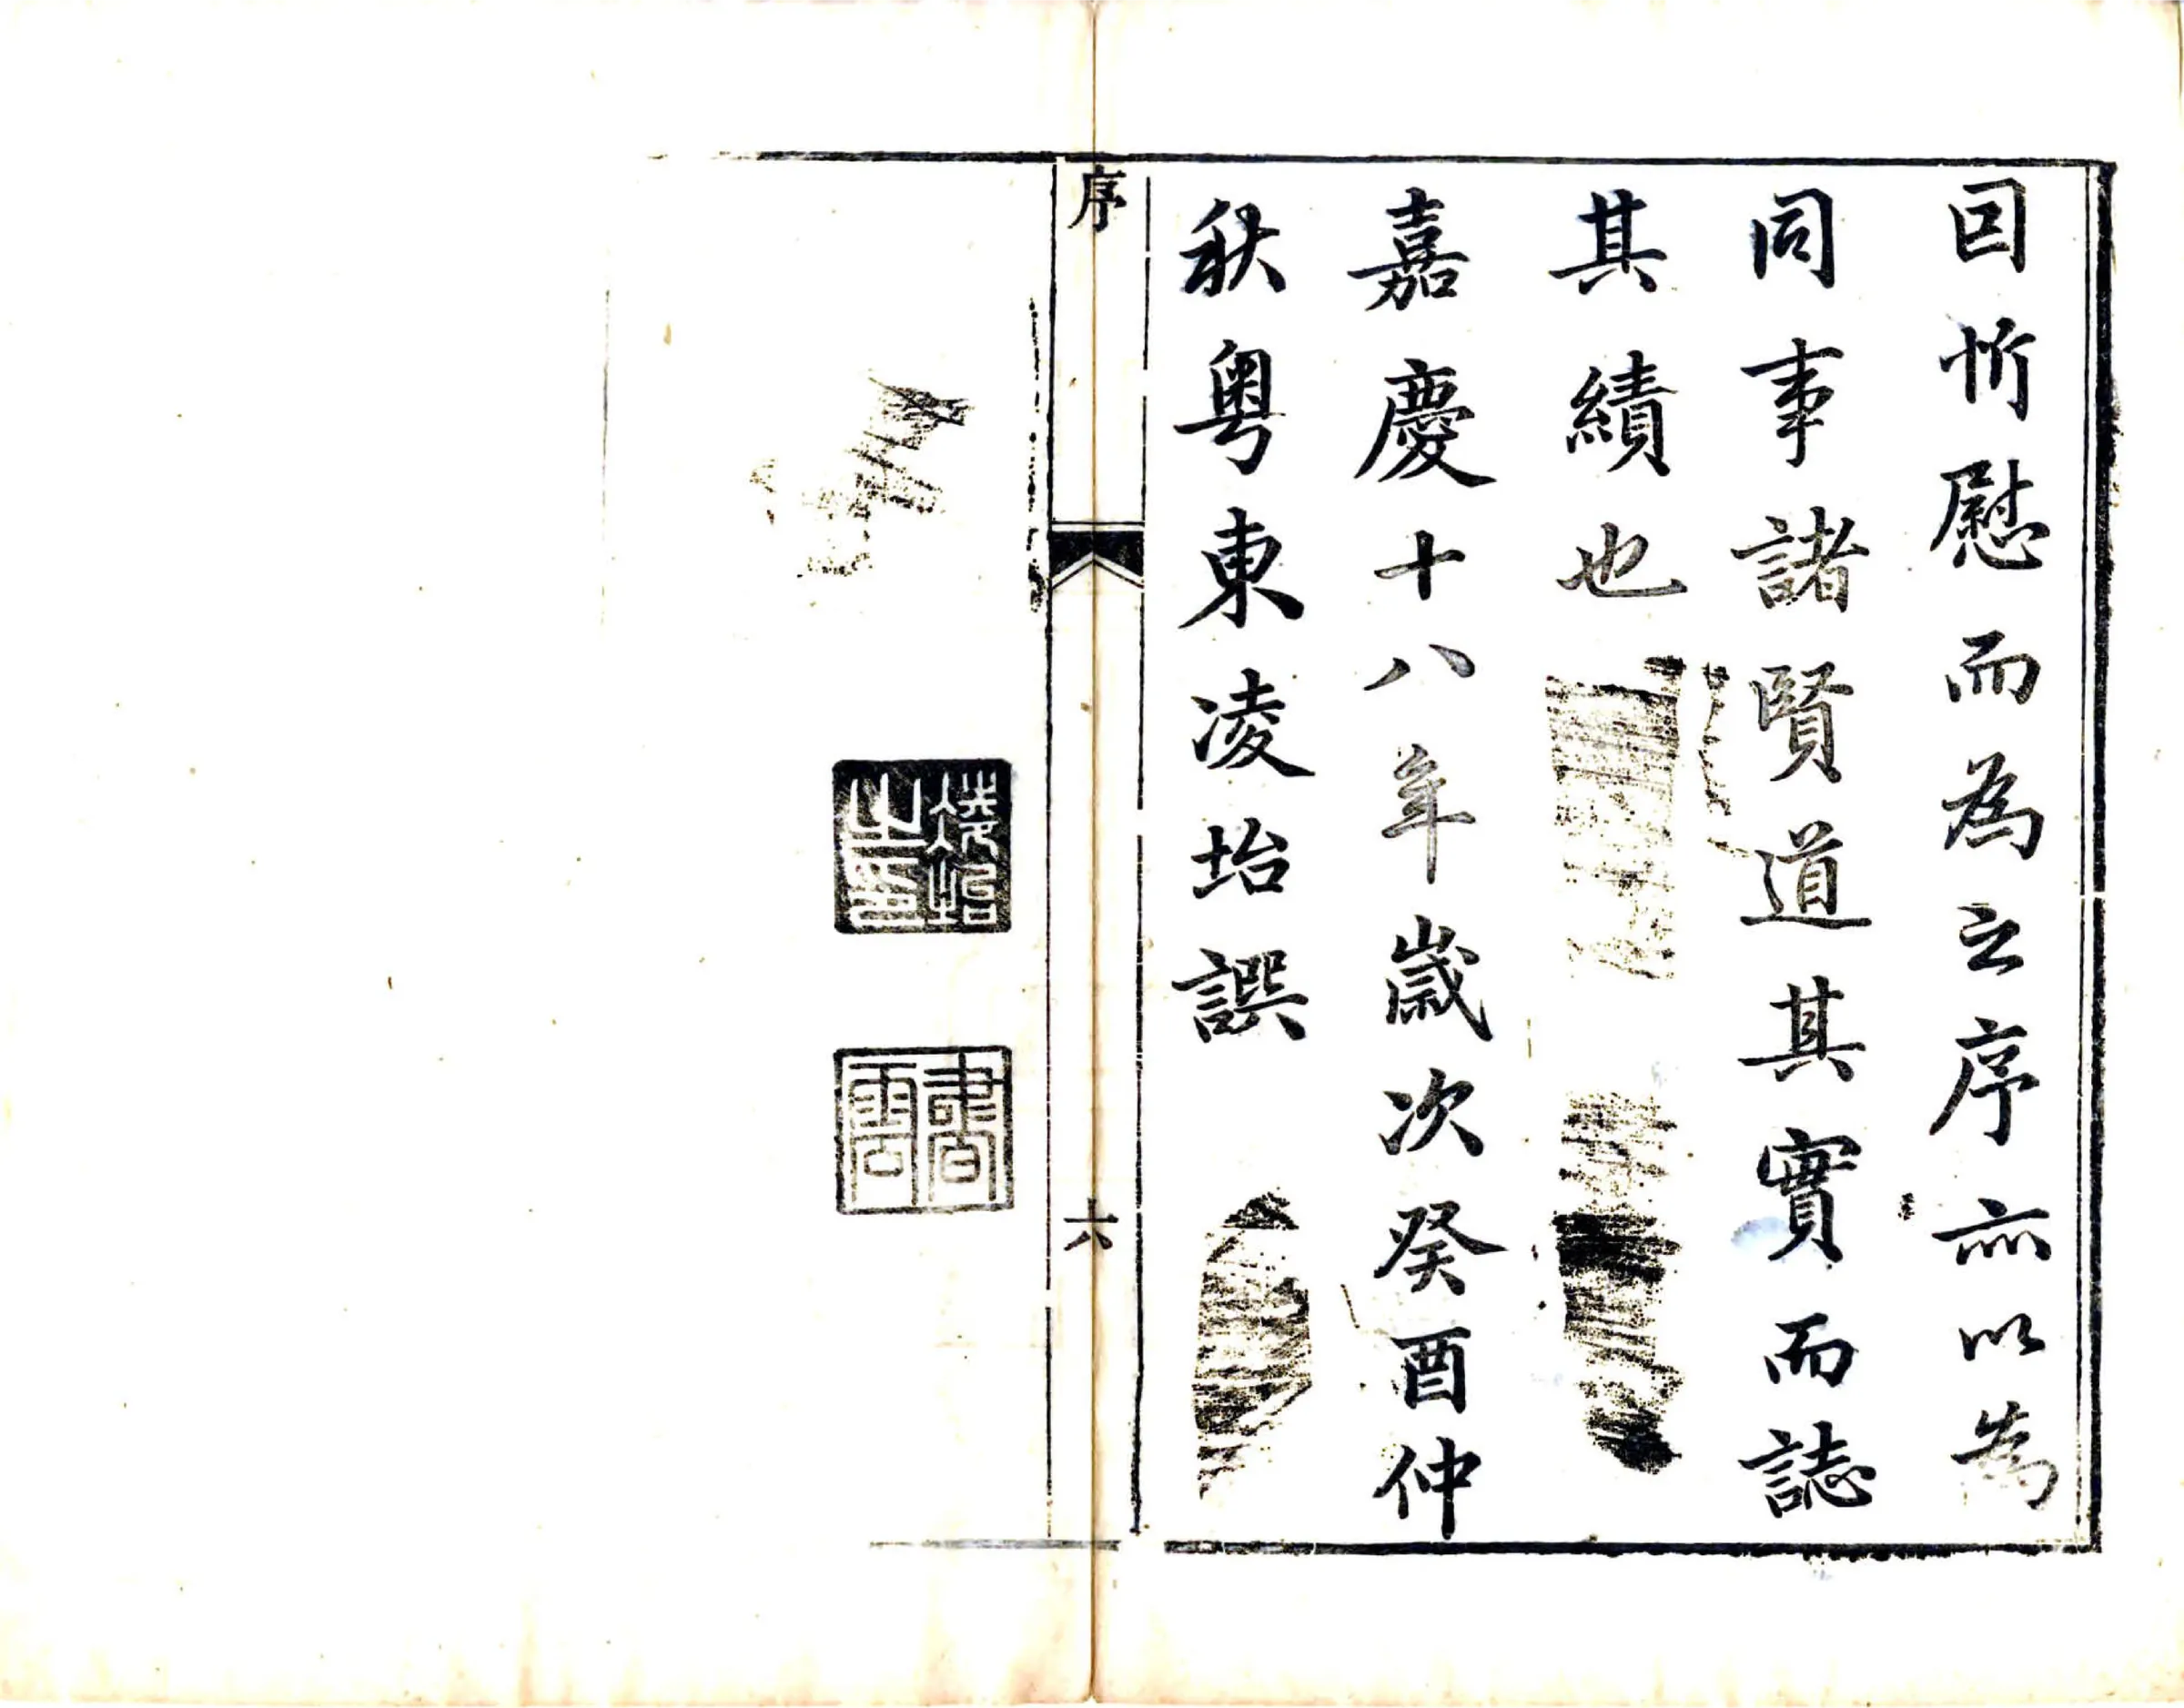 因忻慰而為之序亦以為
同事諸賢道其實而誌
其績也
嘉慶十八年歲次癸酉仲
秋粵東凌坮譔
序
六
凌坮之印
書雲